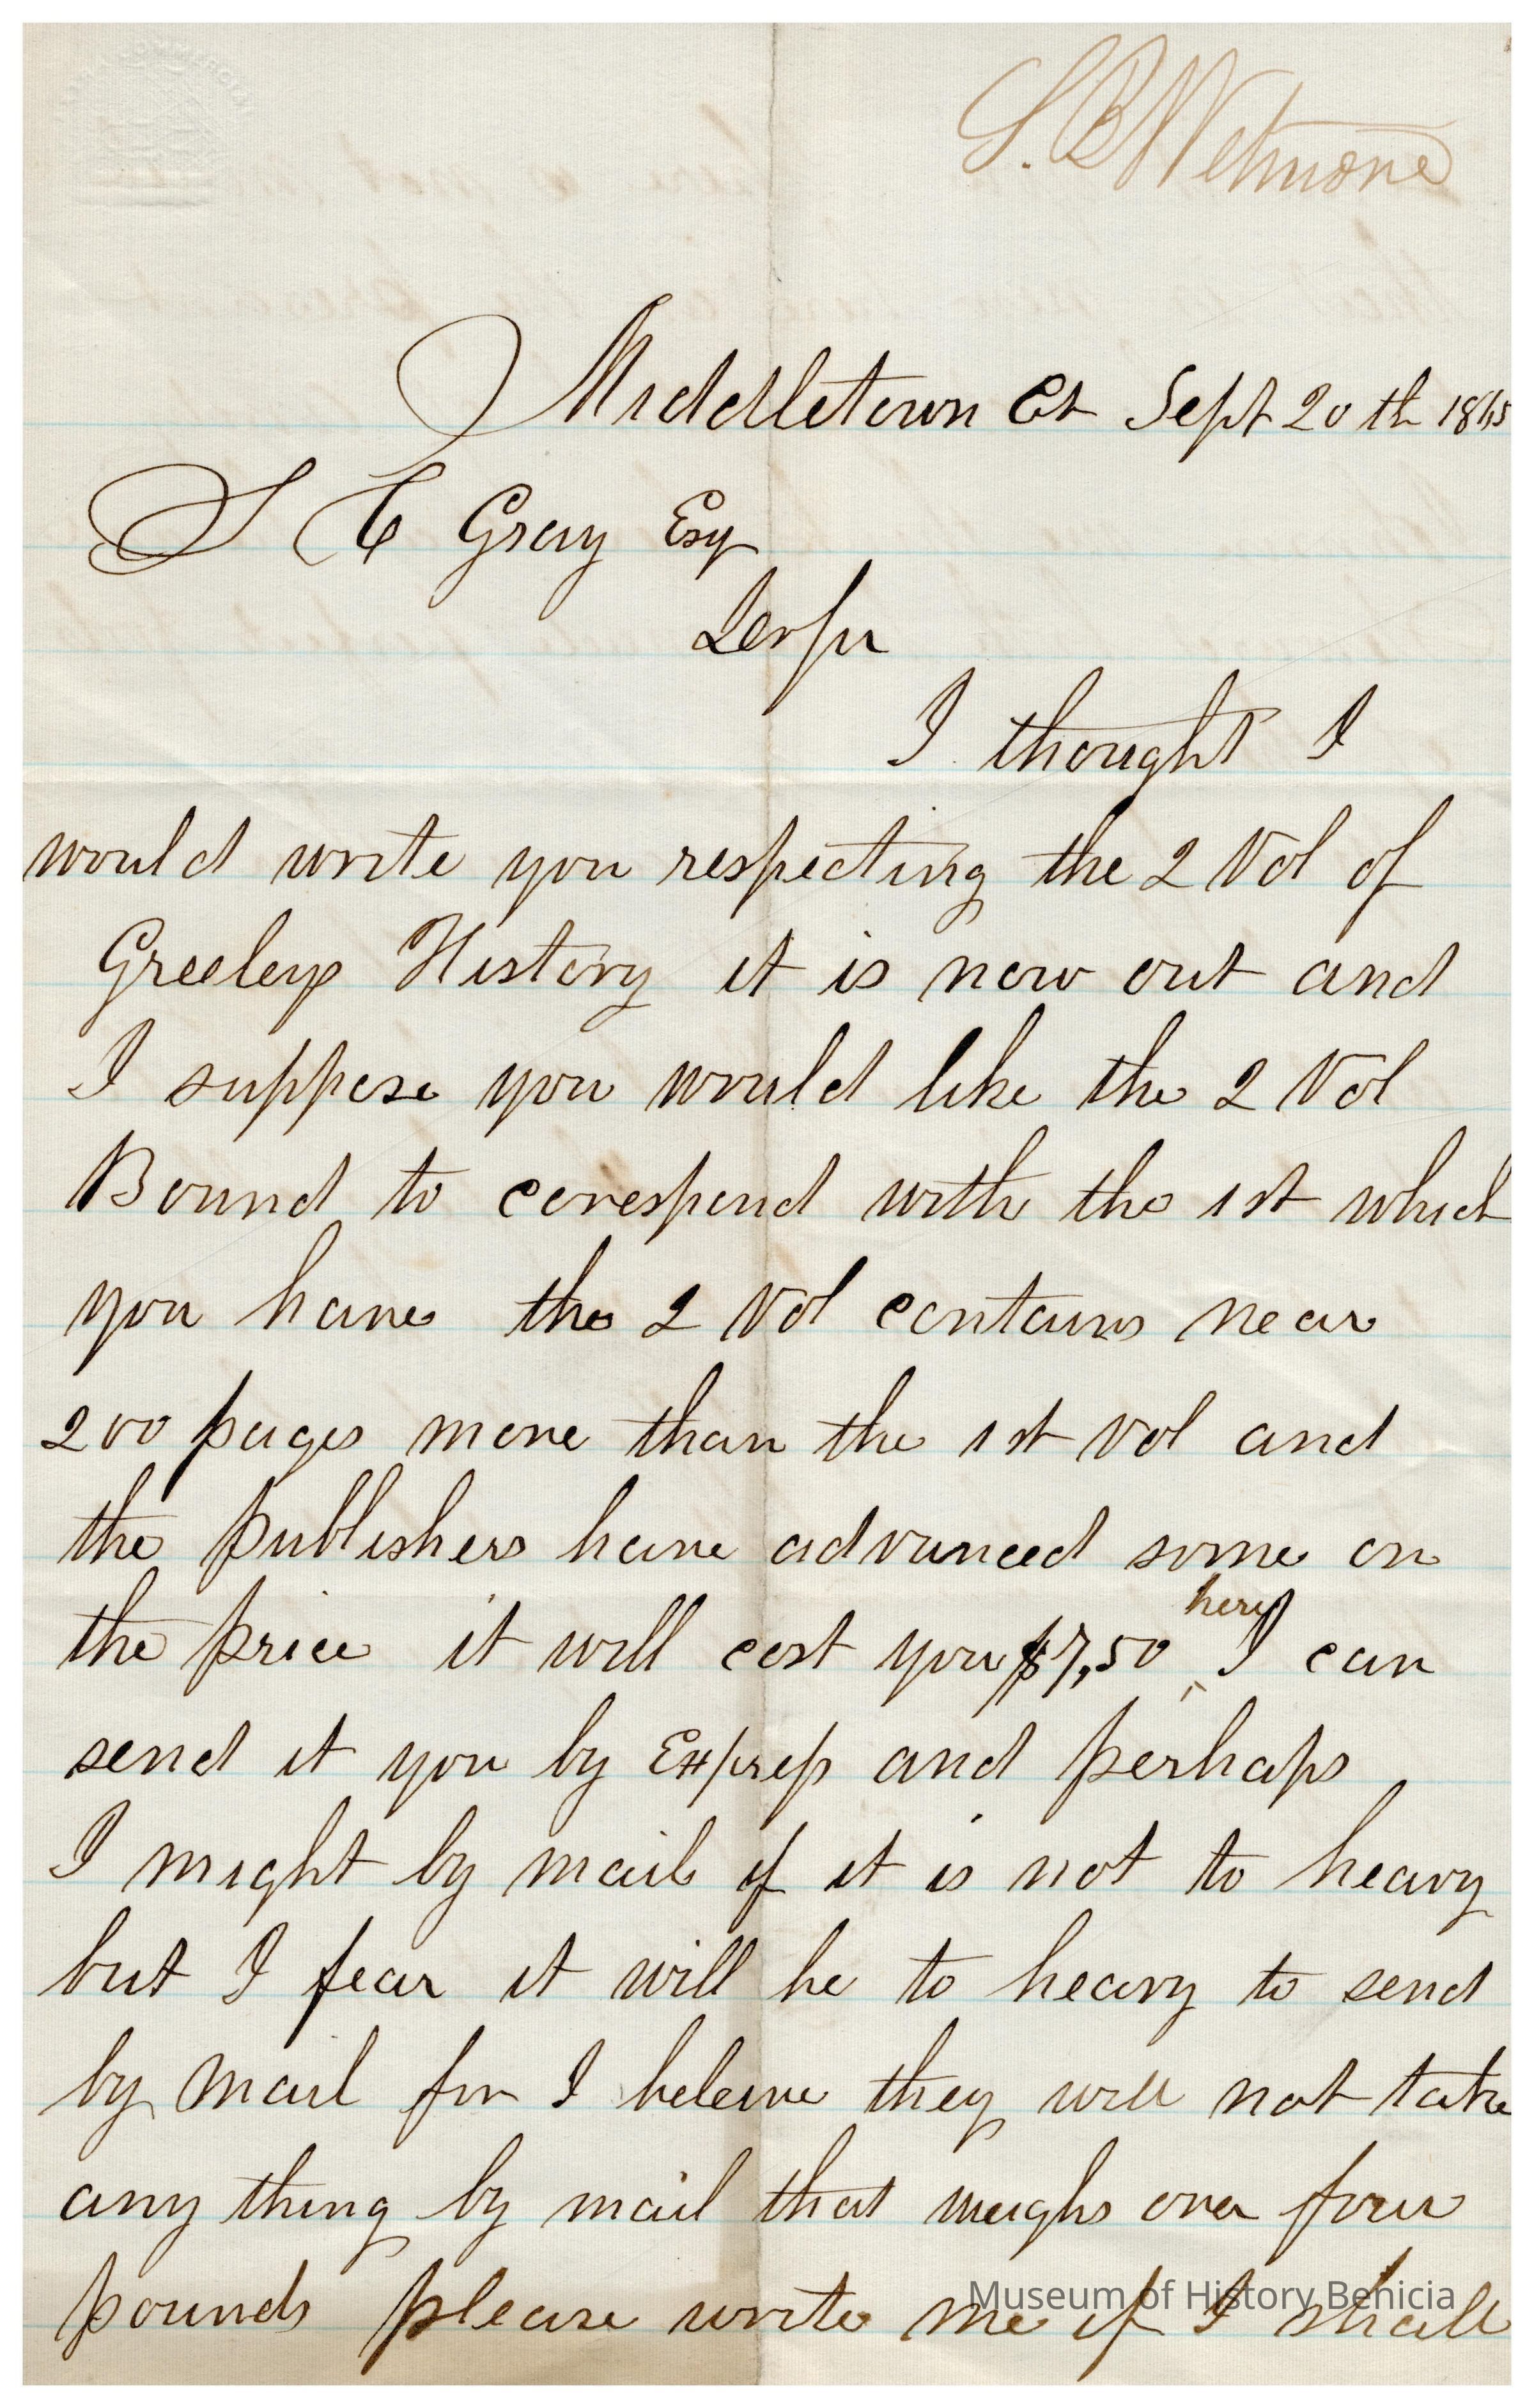 S. B Wetmore
Middletown Ct Sept 20th 1865
S C Gray Esq
Der Sir
I thought I
would write you respecting the 2 Vol of
Greeleys History it is now out and
I suppose you would like the 2 Vol
Bound to corespond with the 1st which
you have the 2 Vol contains near
200 pages more than the 1st vol and
the publishers have advanced some on
the price it will cost you $7,50 here I can
send it you by Express and perhaps
I might by mail if it is not to heavy
but I fear it will be to heavy to send
by mail for I beleive they will not take
any thing by mail that weighs over four
pounds please write me if I shall
Museum of History Benicia